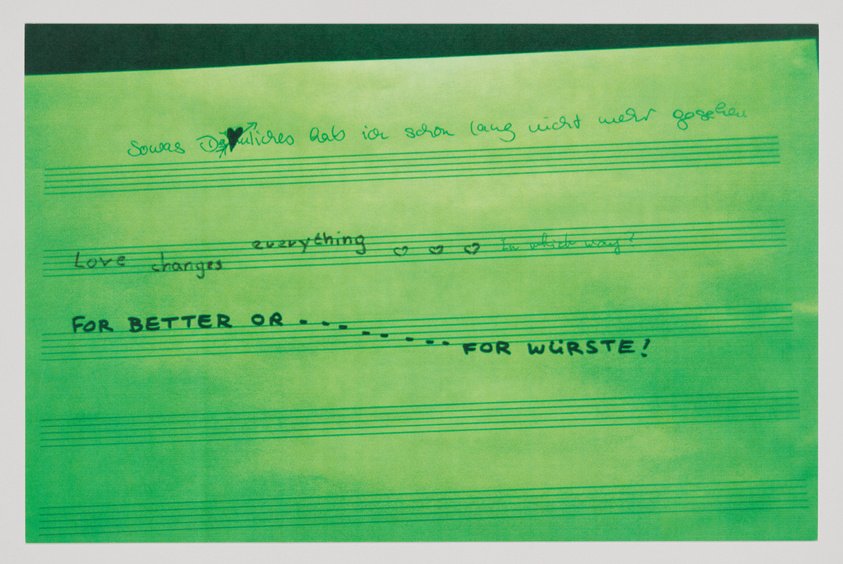 Sowas Dämliches hab ich schon lang nicht mehr gesehen
Love changes everything ♡ ♡ ♡ In which way?
FOR BETTER OR - - - - - - - - FOR WÜRSTE!